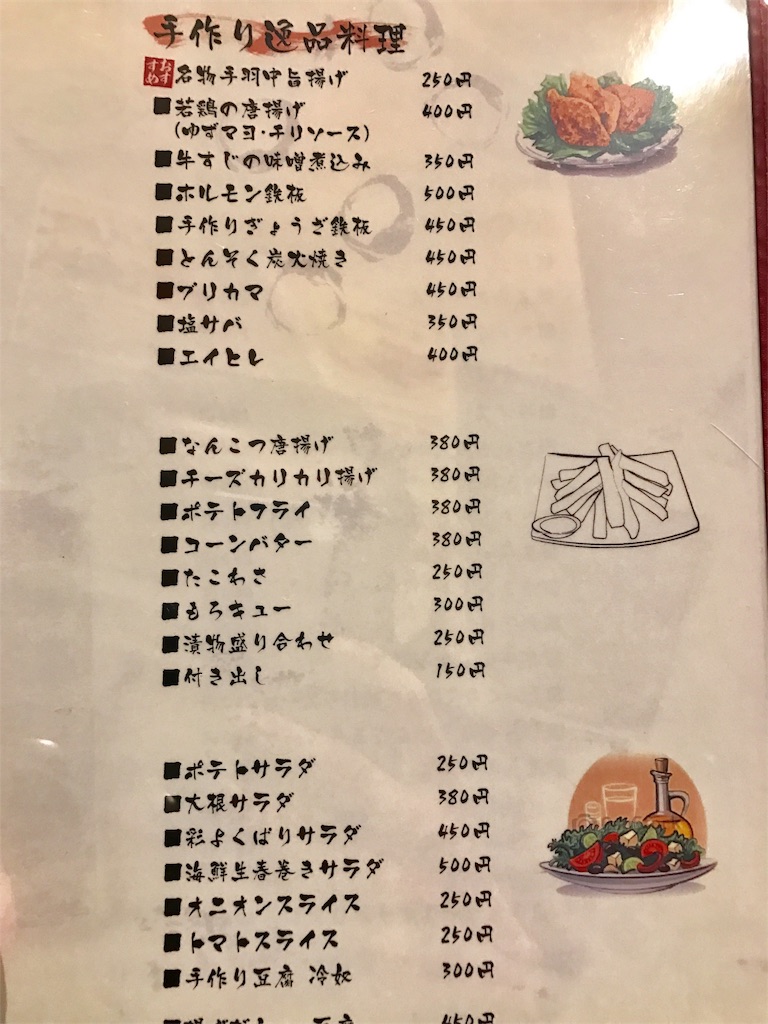 手作り逸品料理
おすすめ 名物手羽中旨揚げ 250円
■若鶏の唐揚げ 400円
(ゆずマヨ・チリソース)
■牛すじの味噌煮込み 350円
■ホルモン鉄板 500円
■手作りぎょうざ鉄板 450円
■とんそく炭火焼き 450円
■ブリカマ 450円
■塩サバ 350円
■エイヒレ 400円
■なんこつ唐揚げ 380円
■チーズカリカリ揚げ 380円
■ポテトフライ 380円
■コーンバター 380円
■たこわさ 250円
■もろキュー 300円
■漬物盛り合わせ 250円
■付き出し 150円
■ポテトサラダ 250円
■大根サラダ 380円
■彩よくばりサラダ 450円
■海鮮生春巻きサラダ 500円
■オニオンスライス 250円
■トマトスライス 250円
■手作り豆腐 冷奴 300円
450円